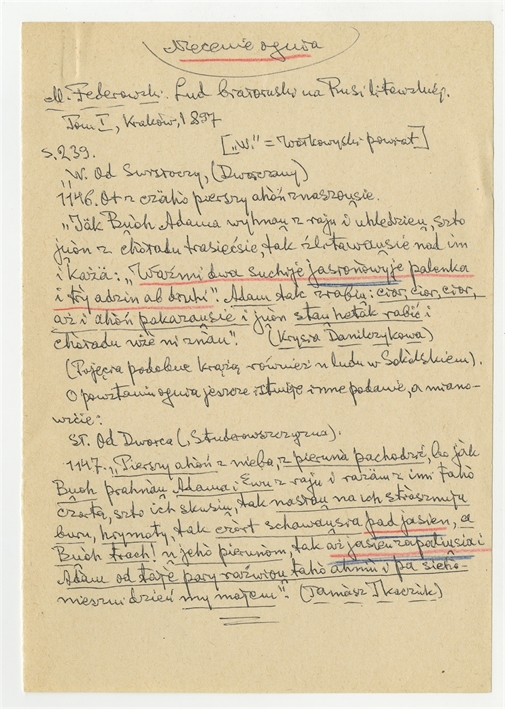 Niecenie ognia
M. Federowski. Lud białoruski na Rusi Litewskiej.
Tom I, Kraków, 1897
["W." = Wołkowyski powiat]
s. 239.
"W. Od Swisłoczy, (Dworczany)
1146. Ot z czáho pierszy ahóń znaszóusie.
"Jak Bůoh Adama wyhnau z raju i uhledzieu, szto
juon z choładu trasiećsie, tak źlitawausie nad im
i każá: "Waźmi dwa suchije jasronówyje palenka
i try adzin ab druhi". Adam tak zrabiu: cior, cior, cior,
aż i ahóń pakazausie i juon stau hetak rabić i
choładu uże ni znau". (Krysia Danilczykowa)
(Pojęcia podobne krążą również u ludu w Sokólskiem).
O powstaniu ognia jeszcze istnieje inne podanie, a miano-
wicie:
Sł. Od Dworca (, Studerowszczyzna).
1147. "Pierszy ahóń z nieba, z pieruna pachodzić, bo jak
Bůoh prahnau Adama i Ewu z raju i razám z imi taho
czorta, szto ich skusiu, tak nasłau na ich strasznuju
buru, hrymoty, tak czort schawausia pad jasien, a
Bůoh trach! u jeho pierunom, tak aż jasien zapaliusia i
Adam od taje pory raźwiou taho ahniu i pa sieho-
nieszni dzień my majem". (Tamasz Tkaczuk)